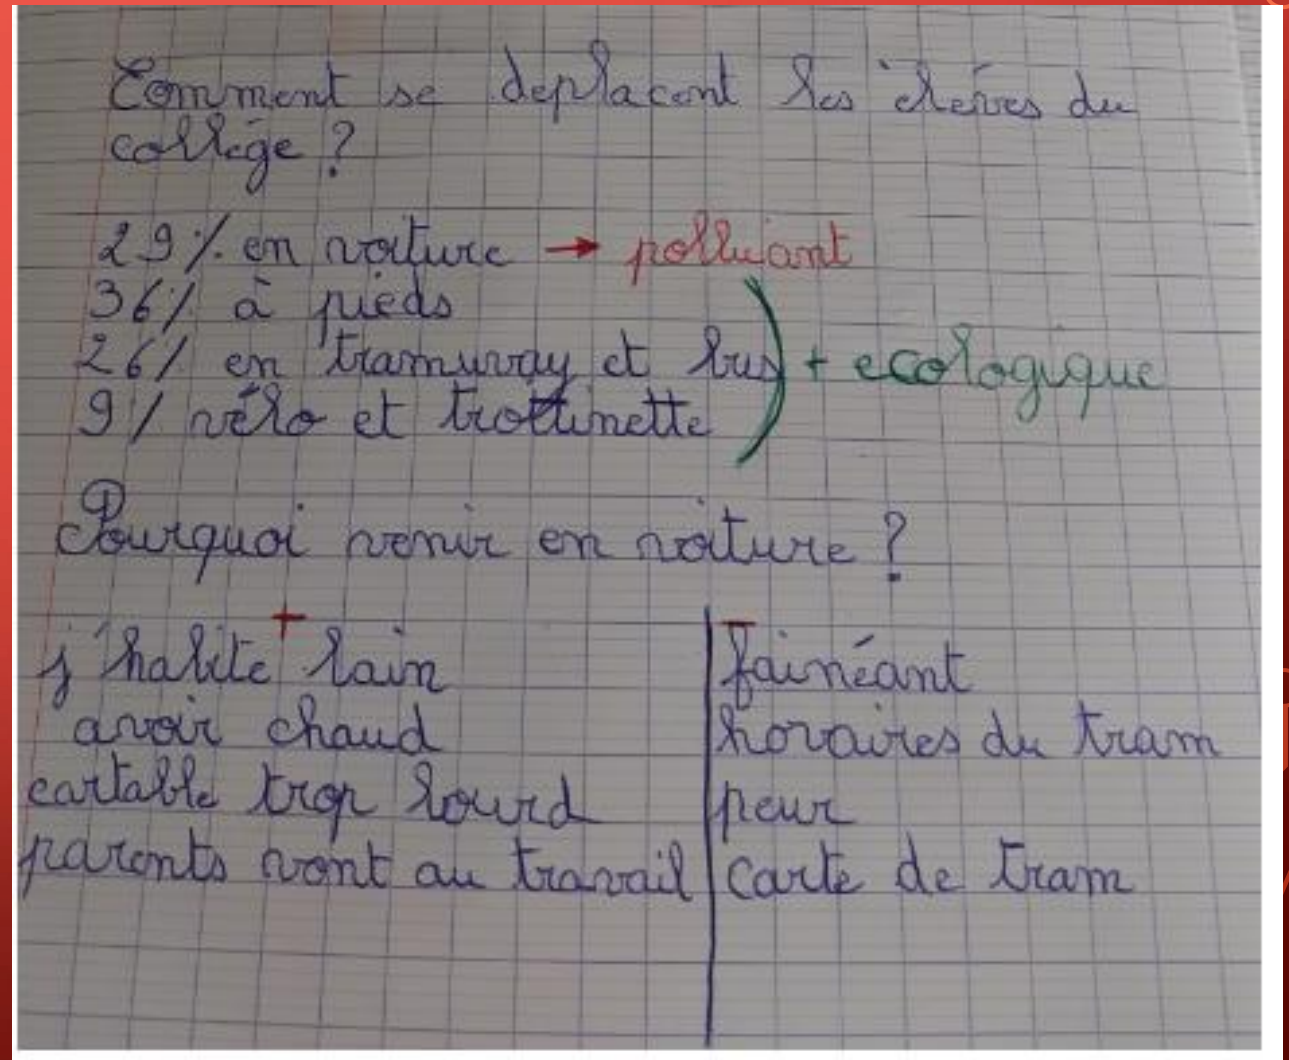 Comment se deplacent les éleves du
collège ?
29% en voiture → polluant
36% à pieds
26% en tramuway et bus + ecologique
9% vélo et trottinette
Pourquoi venir en voiture ?
+ -
j'habite loin | fainéant
avoir chaud | horaires du tram
cartable trop lourd | peur
parents vont au travail | carte de tram